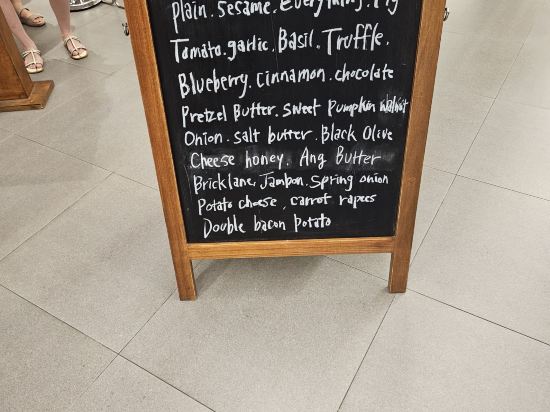 plain. sesame. everything. Fig
Tomato. garlic. Basil. Truffle.
Blueberry. cinnamon. chocolate
Pretzel Butter. sweet pumpkin walnut
Onion. salt butter. Black Olive
Cheese honey. Ang Butter
Bricklane, Jambon. Spring onion
Potato cheese, carrot rapees
Double bacon potato